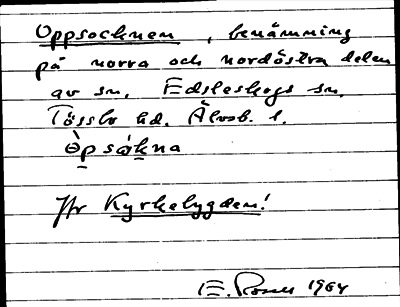 Oppsocknen, benämning
på norra och nordöstra delen
av sn. Edsleskogs sn.
Tössbo hd. Älvsb. l.
Òpsåkna
Jfr Kyrkebygden!
E. Rosell 1964